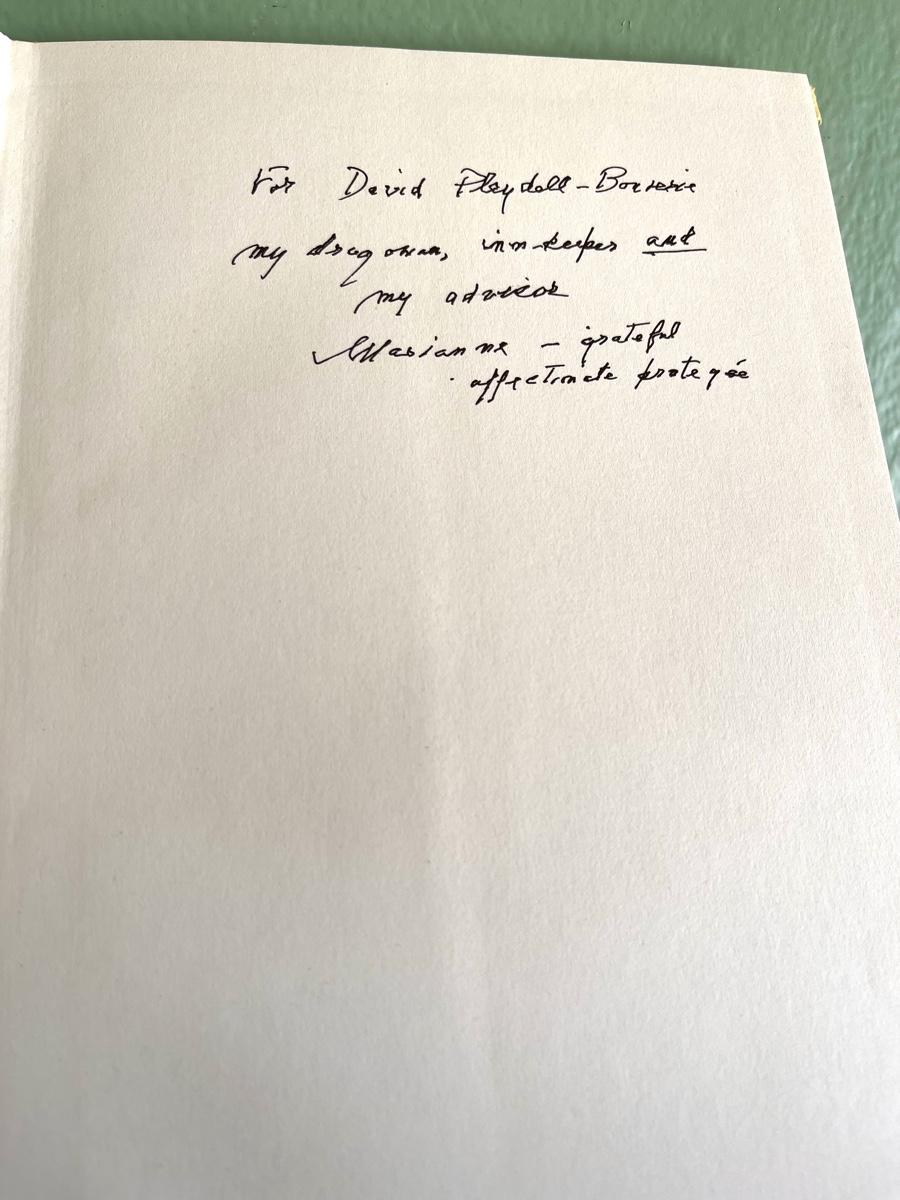 For David Pleydell-Bouverie
my dragoman, inn-keeper and
my advisor
Marianne – grateful
affectionate protegée